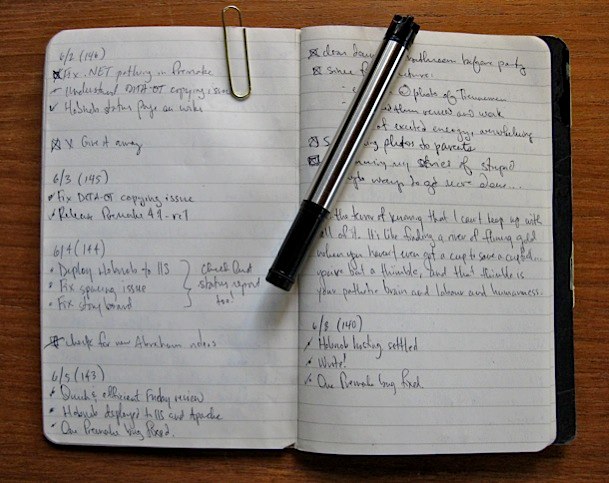 6/2 (146)
Fix .NET pathing in Premake
Understand DITA-OT copying issue
Hobnob status page on wiki
X Give it away
6/3 (145)
Fix DITA-OT copying issue
Release Premake 4.1-rc1
6/4 (144)
Deploy Hobnob to IIS
Fix spacing issue
Fix storyboard
check and
status report
too!
check for new Abraham videos
6/5 (143)
Quick & efficient Friday review
Hobnob deployed to IIS and Apache
One Premake bug fixed.
clean bathroom before party
since
photo of
review and work
of excited energy, overwhelming
photos to parents
my series of stupid
ways to
the terror of knowing that I can't keep up with
all of it. It's like finding a river of flowing gold
when you haven't even got a cup to save a cupful...
you've but a thimble, and that thimble is
your pathetic brain and labour and humanness.
6/8 (140)
Hobnob hosting settled
Write!
One Premake bug fixed